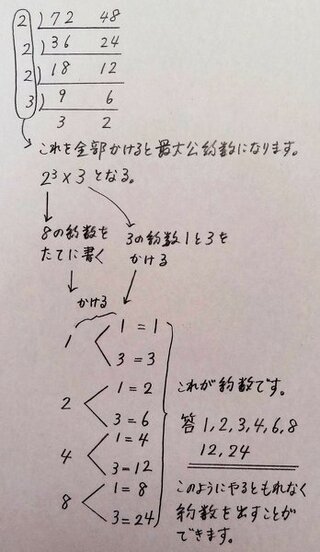 2)72 48
2)36 24
2)18 12
3)9 6
3 2
これを全部かけると最大公約数になります。
2³×3 となる。
8の約数を
たてに書く
3の約数1と3を
かける
かける
1 1=1
3=3
2 1=2
3=6
4 1=4
3=12
8 1=8
3=24
これが約数です。
答 1,2,3,4,6,8
12,24
このようにやるともれなく
約数を出すことが
できます。